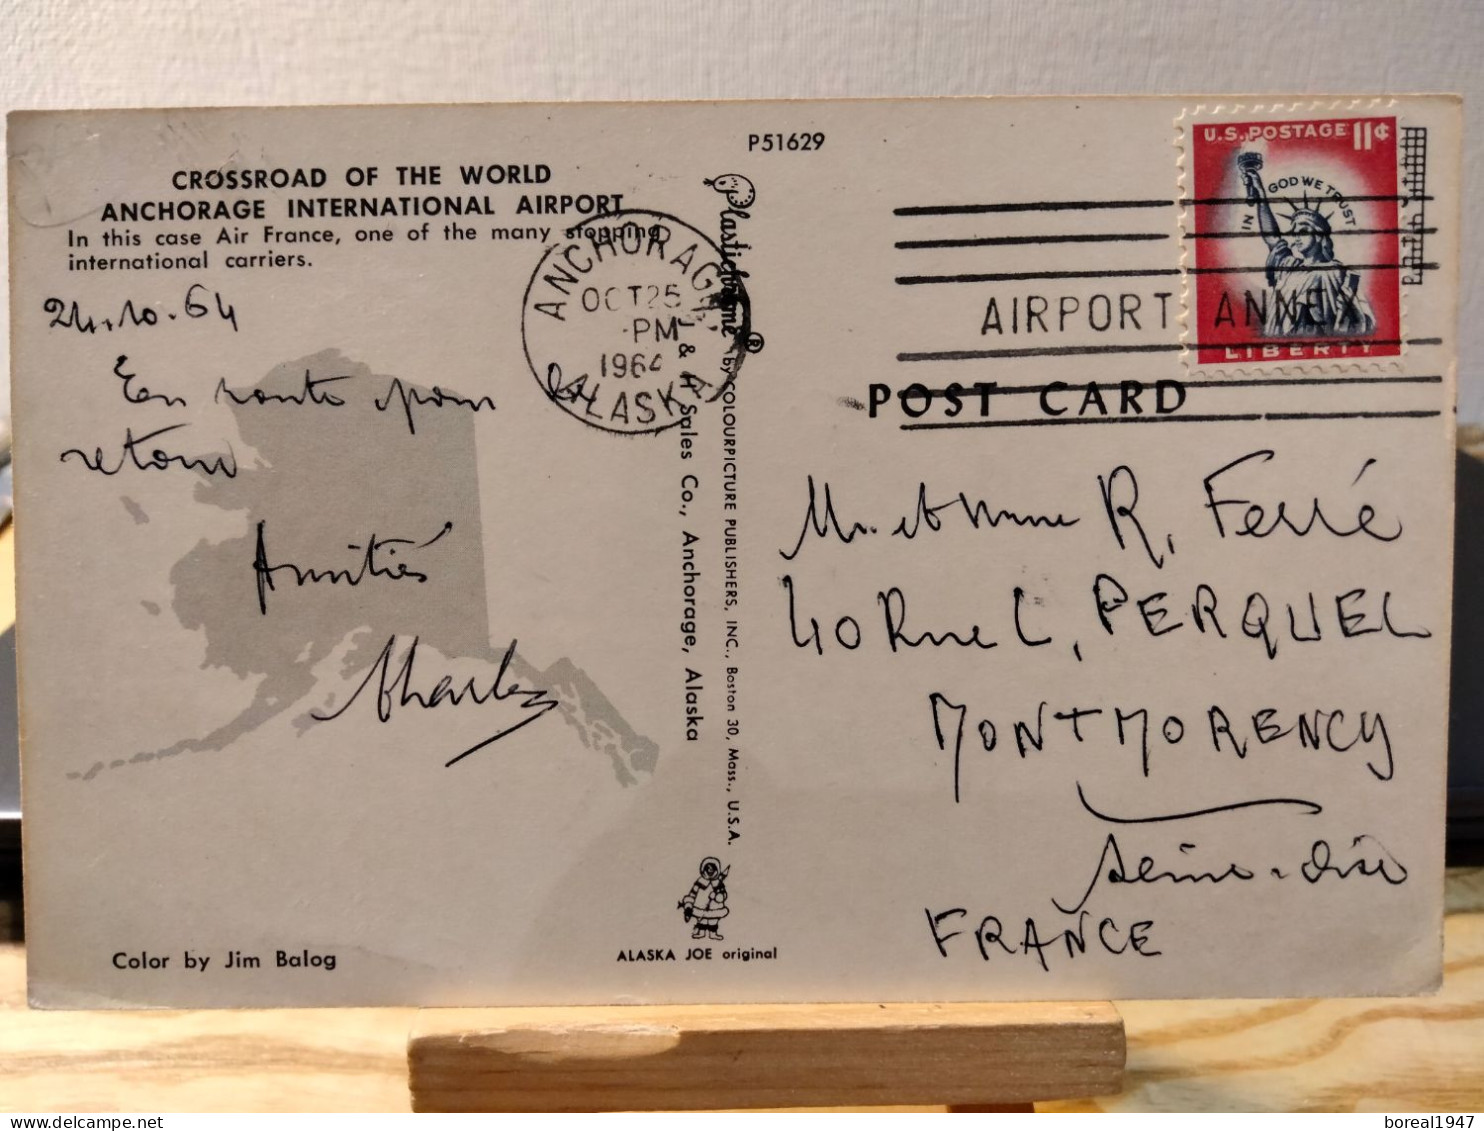 P51629
CROSSROAD OF THE WORLD
ANCHORAGE INTERNATIONAL AIRPORT
In this case Air France, one of the many stopping
international carriers.
24.10.64
En route pour
retour
Amitiés
Charles
Color by Jim Balog
ANCHORAGE,
OCT 25
PM
1964
ALASKA
Plastichrome® by COLOURPICTURE PUBLISHERS, INC., Boston 30, Mass., U.S.A.
J & H Sales Co., Anchorage, Alaska
ALASKA JOE original
U.S. POSTAGE 11¢
IN GOD WE TRUST
LIBERTY
AIRPORT ANNEX
POST CARD
Mr. et Mme R. Ferré
40 Rue C. PERQUEL
MONTMORENCY
Seine-Oise
FRANCE
boreal1947